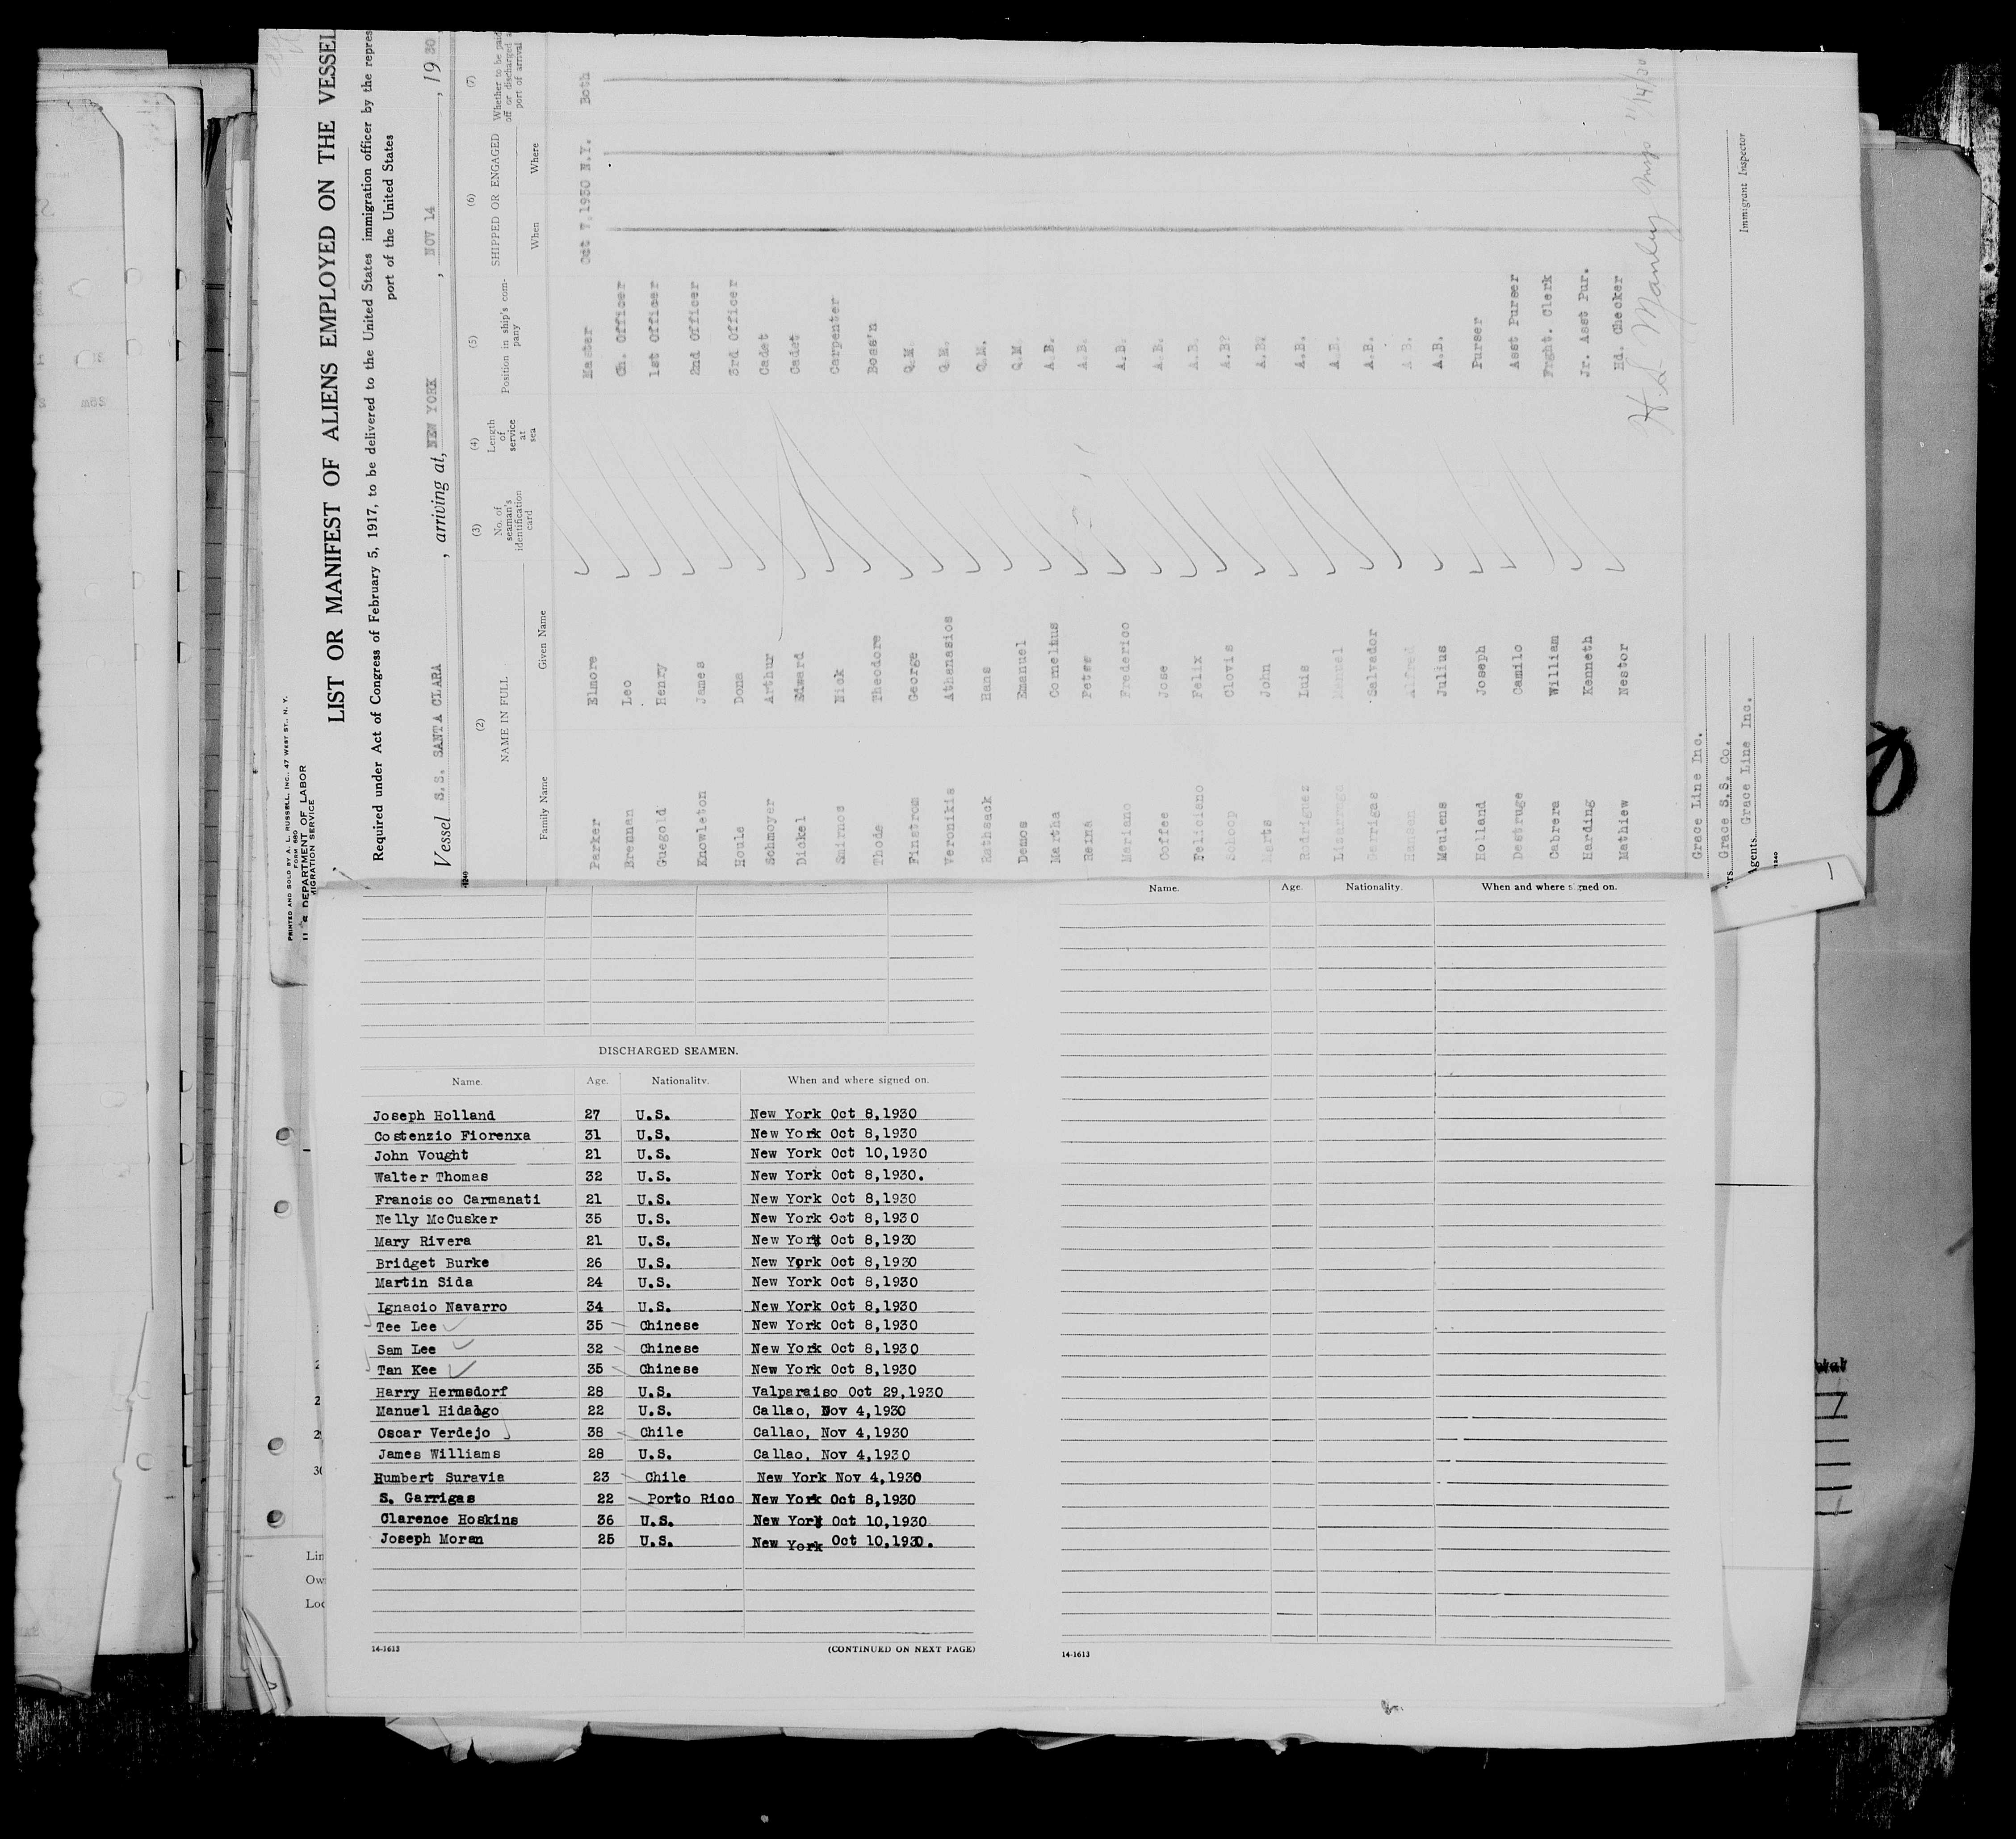 PRINTED AND SOLD BY A. L. RUSSELL, INC., 47 WEST ST., N. Y.
FORM 680
DEPARTMENT OF LABOR
MIGRATION SERVICE
LIST OR MANIFEST OF ALIENS EMPLOYED ON THE VESSEL
Required under Act of Congress of February 5, 1917, to be delivered to the United States immigration officer by the repres
port of the United States
Vessel S.S. SANTA CLARA , arriving at, NEW YORK , NOV 14 , 1930
(2) (3) (4) (5) (6) (7)
NAME IN FULL No. of seaman's identification card Length of service at sea Position in ship's company SHIPPED OR ENGAGED Whether to be paid off or discharged a port of arrival
Family Name Given Name When Where
Parker Elmore Master Oct 7, 1930 N.Y. Both
Brennan Leo Ch. Officer
Guegold Henry 1st Officer
Knowleton James 2nd Officer
Houle Dona 3rd Officer
Schmoyer Arthur Cadet
Dickel Edward Cadet
Smirnos Nick Carpenter
Thode Theodore Boss'n
Finstrom George Q.M.
Veronikis Athanasios Q.M.
Rathsack Hans Q.M.
Demos Emanuel Q.M
Martha Cornelius A.B.
Reina A.B.
Mariano Frederico A.B.
Coffee Jose A.B.
Feliciano Felix A.B.
Schoop Clovis A.B?
Marts John A.B?
Rodriguez Luis A.B.
Manuel A.B.
Garrigas Salvador A.B.
Hansen Alfred A.B.
Meulens Julius A.B.
Holland Joseph Purser
Destruge Camilo Asst Purser
Cabrera William Frght. Clerk
Harding Kenneth Jr. Asst Pur.
Mathiew Nestor Hd. Checker
11/14/30
Grace Line Inc.
Grace S.S. Co.
Agents. Grace Line Inc.
Immigrant Inspector
1240
Name. Age. Nationality. When and where signed on.
DISCHARGED SEAMEN.
Name. Age. Nationality. When and where signed on.
Joseph Holland 27 U.S. New York Oct 8,1930
Costenzio Fiorenxa 31 U.S. New York Oct 8,1930
John Vought 21 U.S. New York Oct 10,1930
Walter Thomas 32 U.S. New York Oct 8,1930.
Francisco Carmanati 21 U.S. New York Oct 8,1930
Nelly McCusker 35 U.S. New York Oct 8,1930
Mary Rivera 21 U.S. New York Oct 8,1930
Bridget Burke 26 U.S. New York Oct 8,1930
Martin Sida 24 U.S. New York Oct 8,1930
Ignacio Navarro 34 U.S. New York Oct 8,1930
Tee Lee 35 Chinese New York Oct 8,1930
Sam Lee 32 Chinese New York Oct 8,1930
Tan Kee 35 Chinese New York Oct 8,1930
Harry Hermsdorf 28 U.S. Valparaiso Oct 29,1930
Manuel Hidalgo 22 U.S. Callao, Nov 4,1930
Oscar Verdejo 38 Chile Callao, Nov 4,1930
James Williams 28 U.S. Callao, Nov 4,1930
Humbert Suravia 23 Chile New York Nov 4,1930
S. Garrigas 22 Porto Rico New York Oct 8,1930
Clarence Hoskins 36 U.S. New York Oct 10,1930
Joseph Moran 25 U.S. New York Oct 10,1930.
14-1613 (CONTINUED ON NEXT PAGE)
14-1613